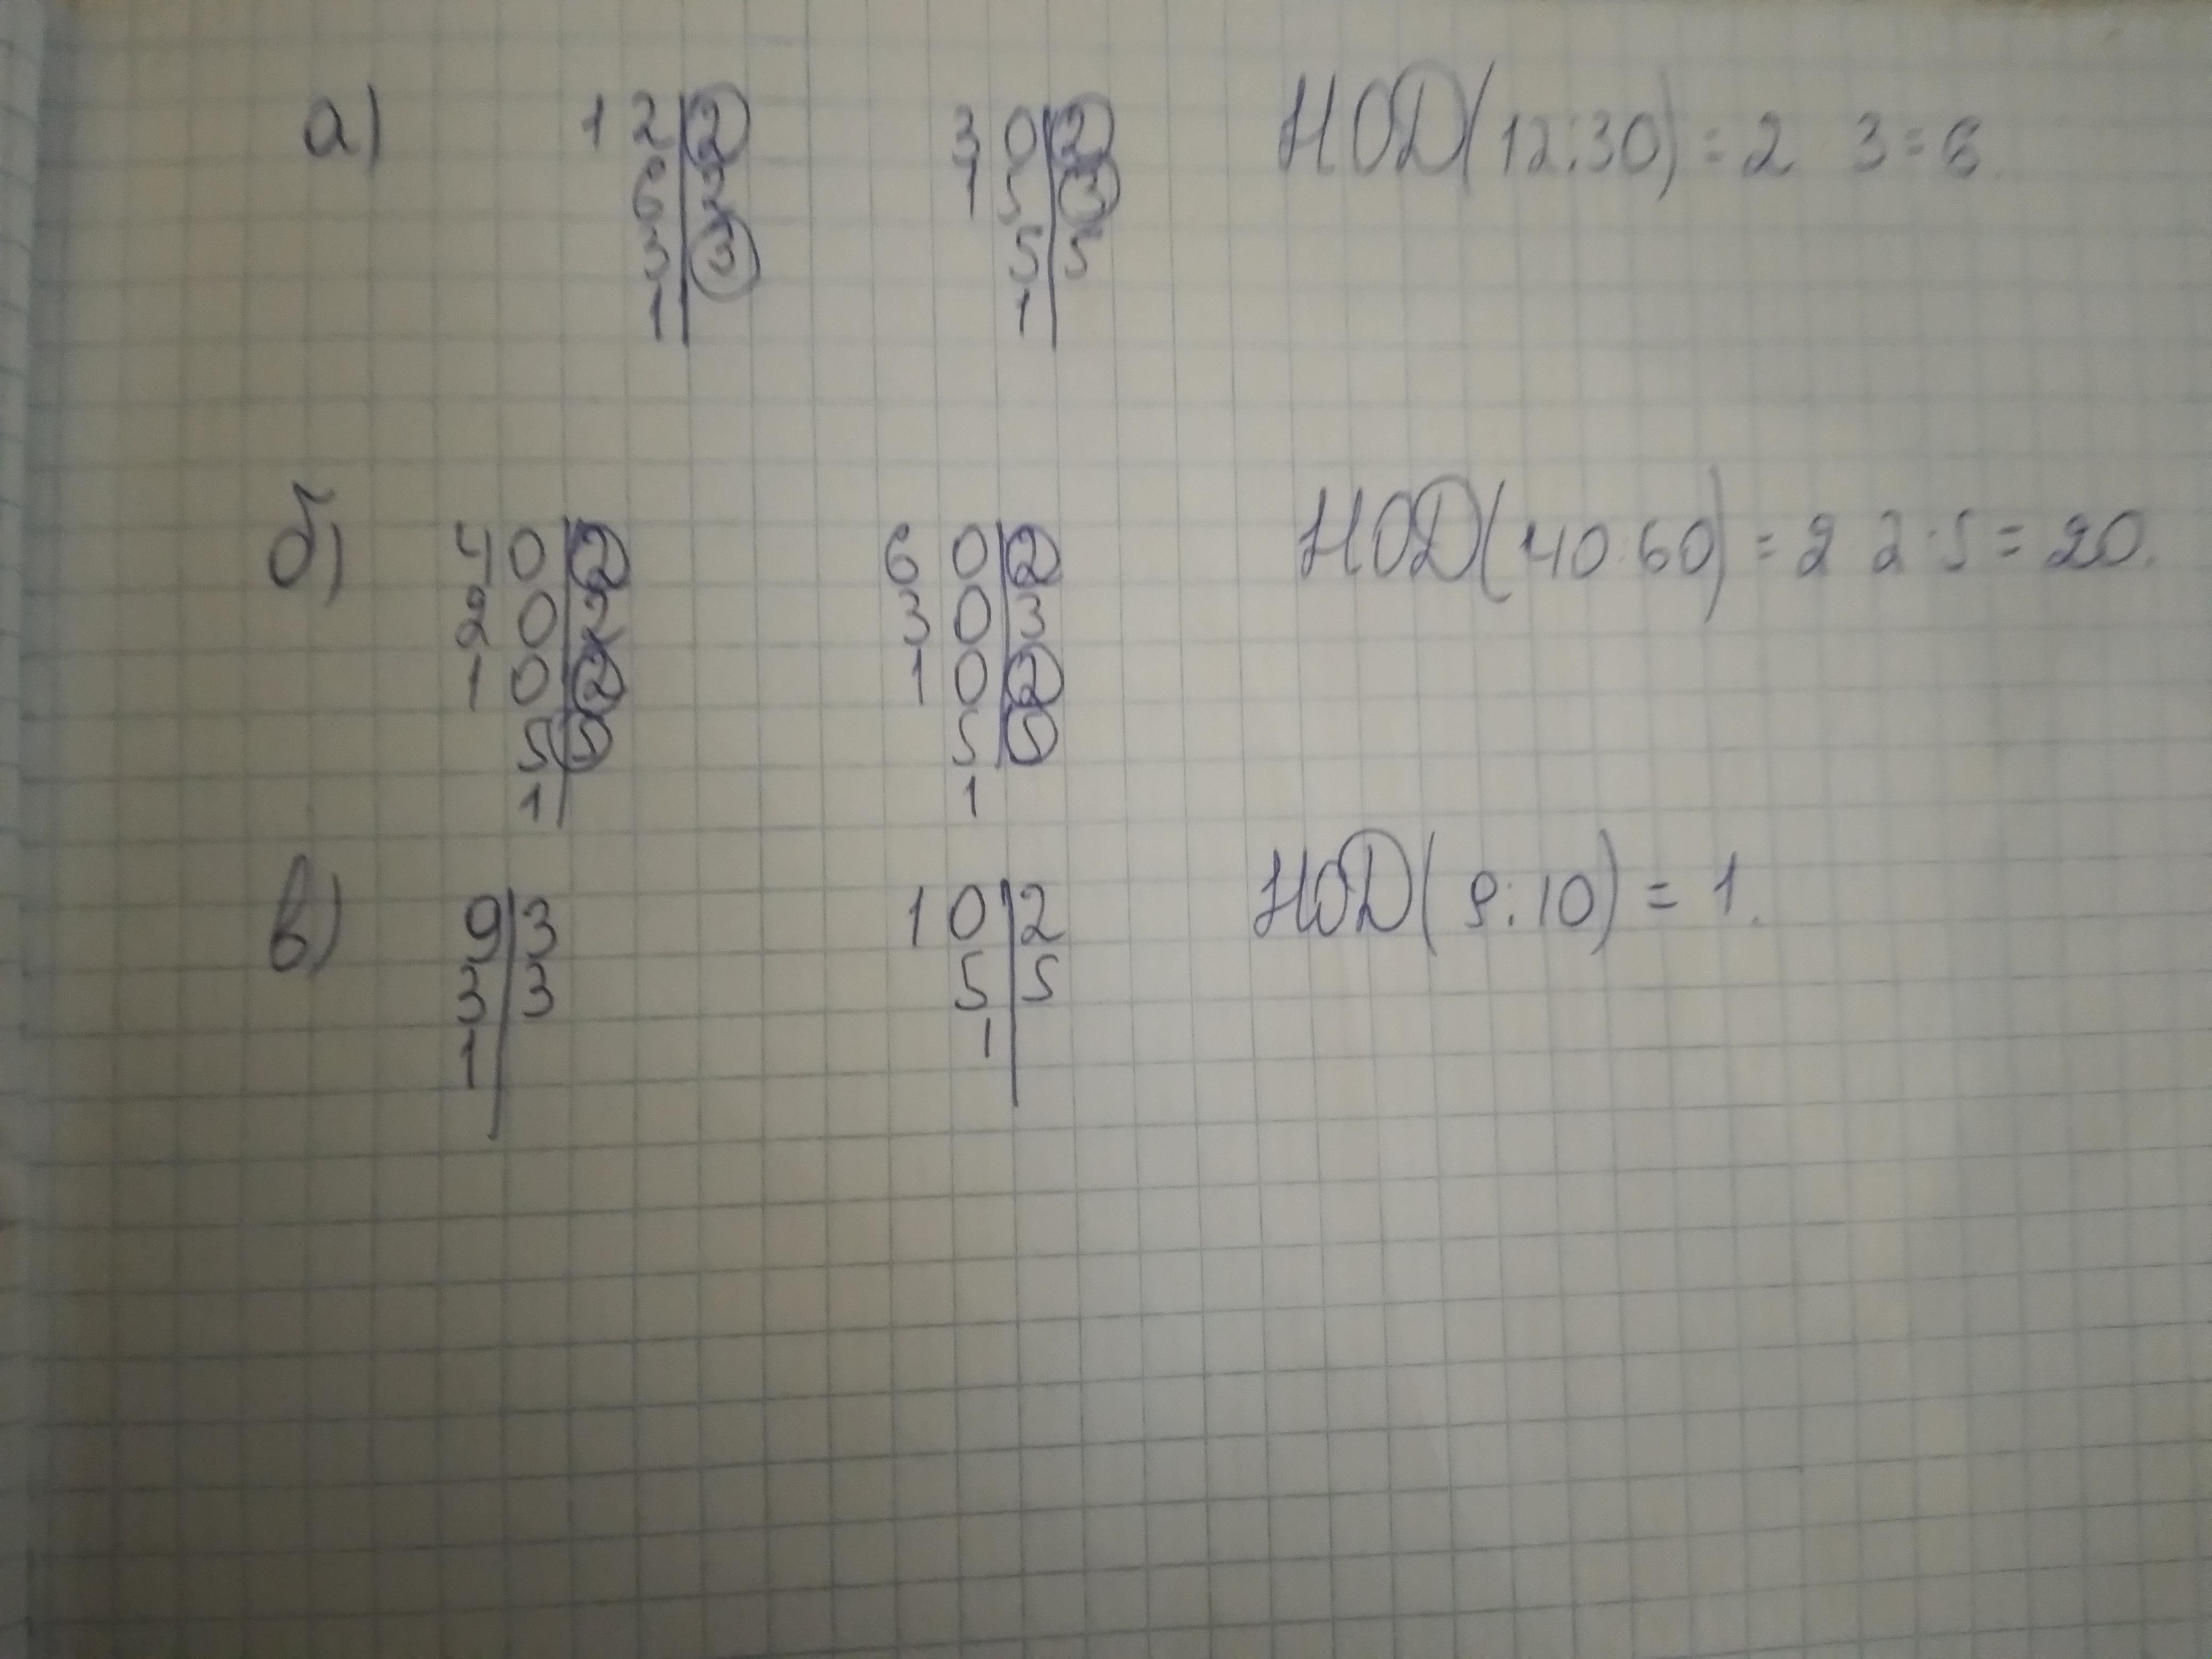 а) 12|2 30|2 НОД(12:30) = 2 3 = 6.
6|2 15|3
3|3 5|5
1| 1|
б) 40|2 60|2 НОД(40:60) = 2 2·5 = 20.
20|2 30|3
10|2 10|2
5|5 5|5
1| 1
в) 9|3 10|2 НОД(9:10) = 1.
3|3 5|5
1| 1|